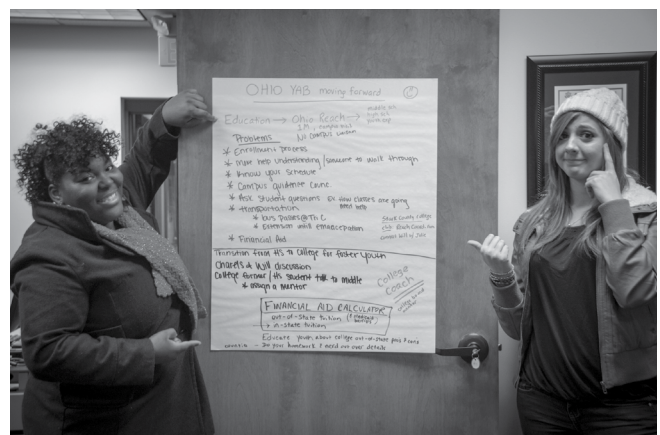 OHIO YAB moving forward
Education → Ohio Reach →
Problems
* Enrollment process
* More help understanding / someone to walk through
* Know your schedule
* Campus guidance Counc.
* Ask student questions ex. how classes are going
need help
* transportation
* bus passes @
* Extension until emancipation
* Financial Aid
Stark County College
Transition from HS to College for foster youth
& Will discussion
College former/HS student talk to middle
* assign a mentor
College
Coach
FINANCIAL AID CALCULATOR
out-of-State tuition
in-state tuition
Educate youth about college out-of-state pros & cons
- Do your homework & need out over details